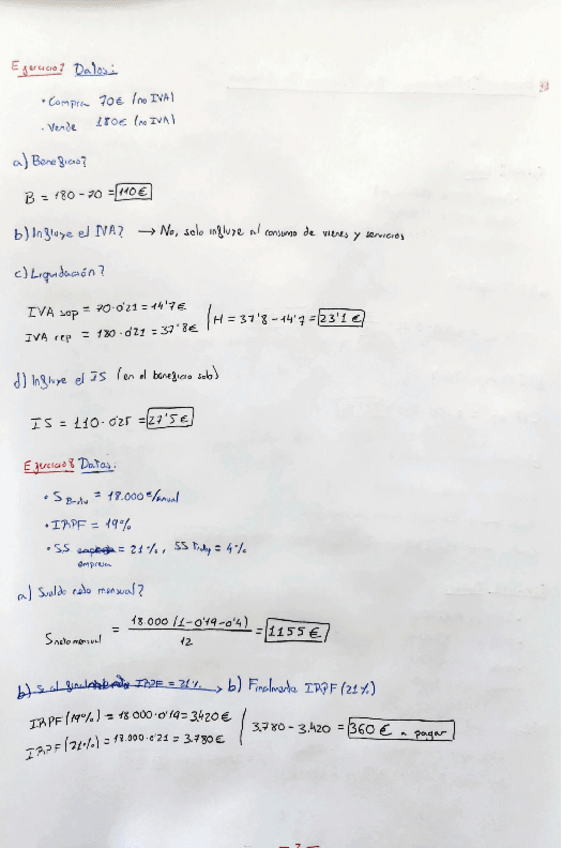 Ejercicio 7 Datos:
• Compra 70€ (no IVA)
• Vende 180€ (no IVA)
a) Beneficio?
B = 180 - 70 = 110€
b) Influye el IVA? → No, solo influye al consumo de vienes y servicios
c) Liquidación?
IVA sop = 70·0'21 = 14'7€
IVA rep = 180·0'21 = 37'8€ / H = 37'8 - 14'7 = 23'1€
d) Influye el IS (en el beneficio solo)
IS = 110·0'25 = 27'5€
Ejercicio 8 Datos:
• S Bruto = 18.000€/anual
• IRPF = 19%
• SS empresa = 21%, SS = 4%
a) Sueldo neto mensual?
S neto mensual = 18 000 (1-0'19-0'4) / 12 = 1155€
b) Finalmente IRPF (21%)
IRPF (19%) = 18 000·0'19 = 3420€
IRPF (21%) = 18.000·0'21 = 3.780€ / 3.780 - 3.420 = 360€ a pagar
- 7 -